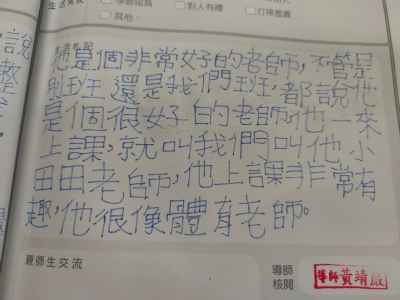 生活實
學藝
對人有禮
打掃整潔
其他：
生活札記
他是個非常好的老師，不管是
別班還是我們班，都說他
是個很好的老師他一來
上課，就叫我們叫他小
田田老師，他上課非常有
趣，他很像體育老師。
說
整
親師生交流
導師
核閱
導師黃靖